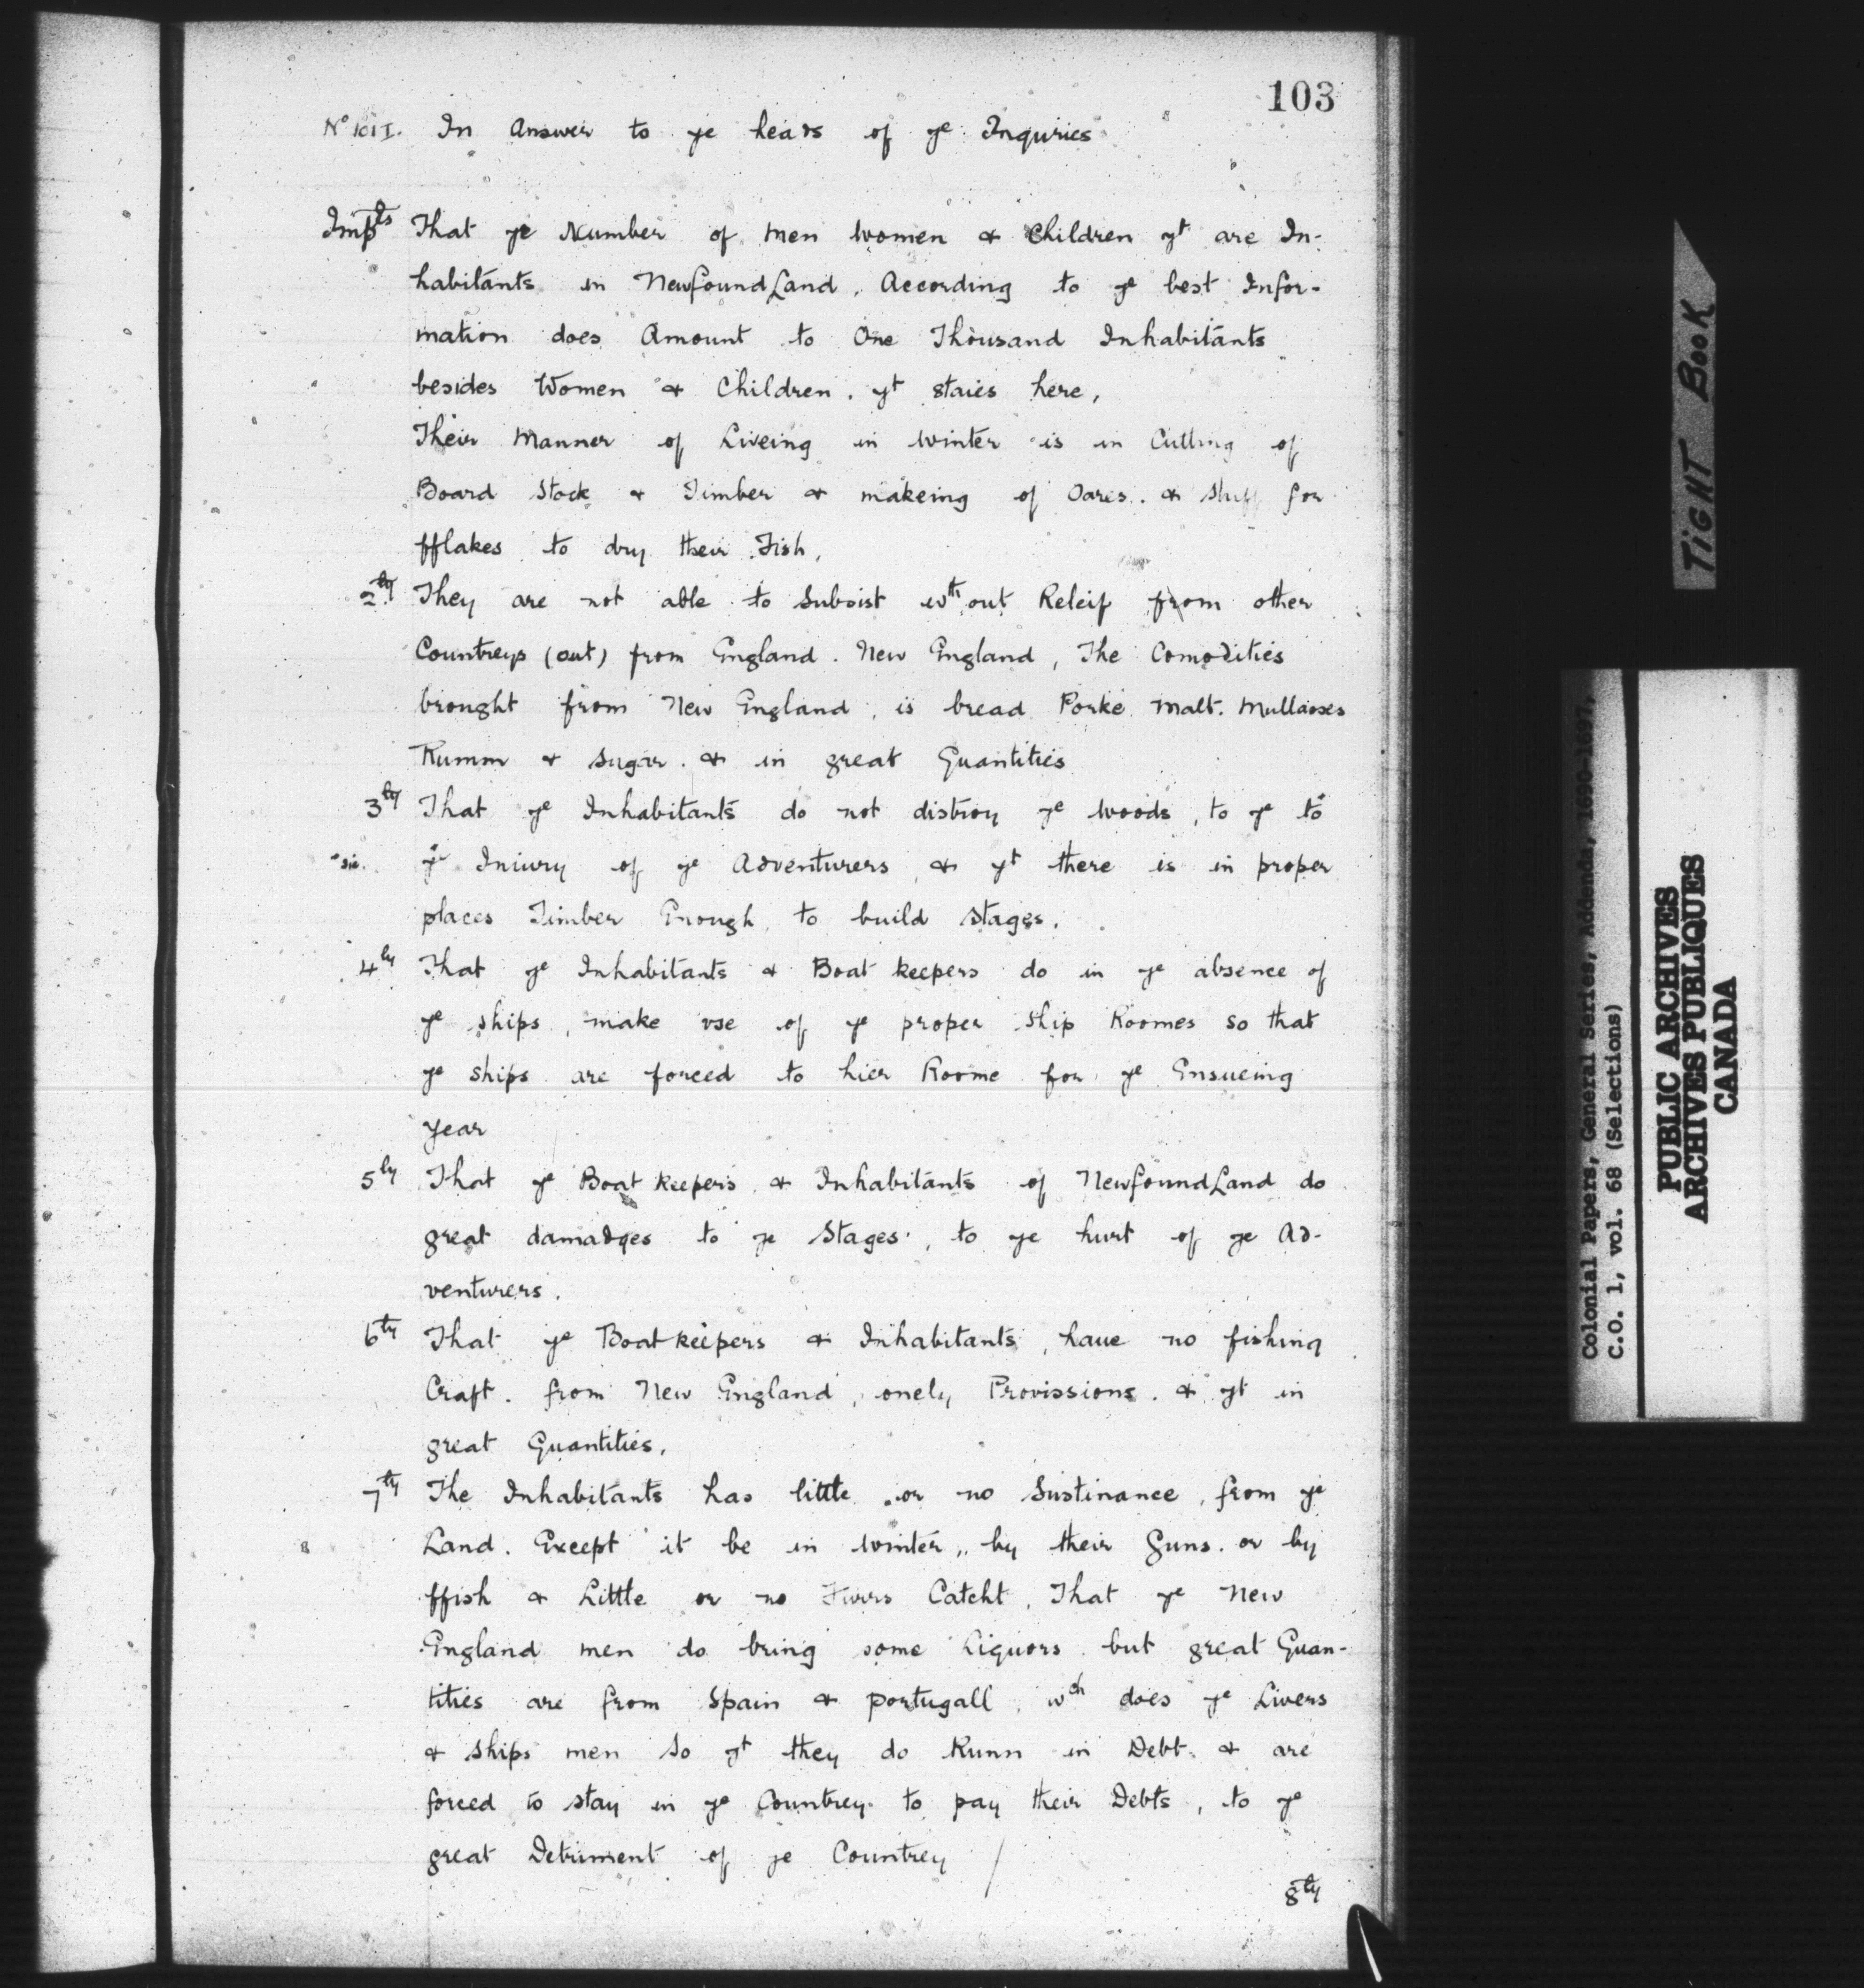 103
No 101 I. In Answer to ye heads of ye Inquries
Impls That ye Number of Men Women & Children yt are In-
habitants in NewfoundLand, According to ye best Infor-
mation does Amount to One Thousand Inhabitants
besides Women & Children. yt staies here,
Their Manner of Liveing in Winter is in Cutting of
Board Stock & Timber & makeing of Oares. & Stuff for
fflakes to dry their Fish,
2ly They are not able to Subsist wth out Releif from other
Countreys (out) from England. New England, The Comodities
brought from New England, is bread Porke Malt. Mullasses
Rumm & Sugar. & in great Quantities
3ly That ye Inhabitants do not distroy ye Woods, to ye to*
*sic. ye* Iniury of ye Adventurers, & yt there is in proper
places Timber Enough to build Stages.
4ly That ye Inhabitants & Boat keepers do in ye absence of
ye Ships, make vse of ye proper Ship Roomes so that
ye Ships are forced to hier Roome for ye Ensueing
Year
5ly That ye Boat keepers & Inhabitants of NewfoundLand do
great damadges to ye Stages, to ye hurt of ye Ad-
venturers.
6ly That ye Boatkeepers & Inhabitants, haue no fishing
Craft. from New England, onely Provissions. & yt in
great Quantities.
7ly The Inhabitants has little or no Sustinance, from ye
Land. Except it be in Winter,, by their Guns. or by
ffish & Little or no Furrs Catcht, That ye New
England men do bring some Liquors but great Quan-
tities are from Spain & Portugall, wch does ye Livers
& Ships men so yt they do Runn in Debt. & are
forced to stay in ye Countrey to pay their Debts, to ye
great Detriment of ye Countrey /
8ly
TIGHT BOOK
Colonial Papers, General Series, Addenda, 1690-1697,
C.O. 1, vol. 68 (Selections)
PUBLIC ARCHIVES
ARCHIVES PUBLIQUES
CANADA